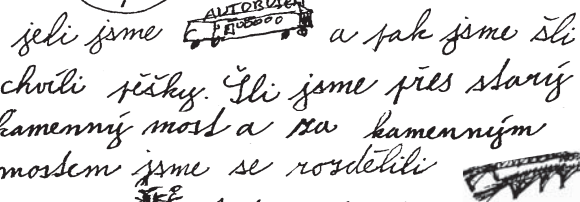 jeli jsme AUTOBUSEM a pak jsme šli
chvíli pěšky. Šli jsme přes starý
kamenný most a za kamenným
mostem jsme se rozdělili